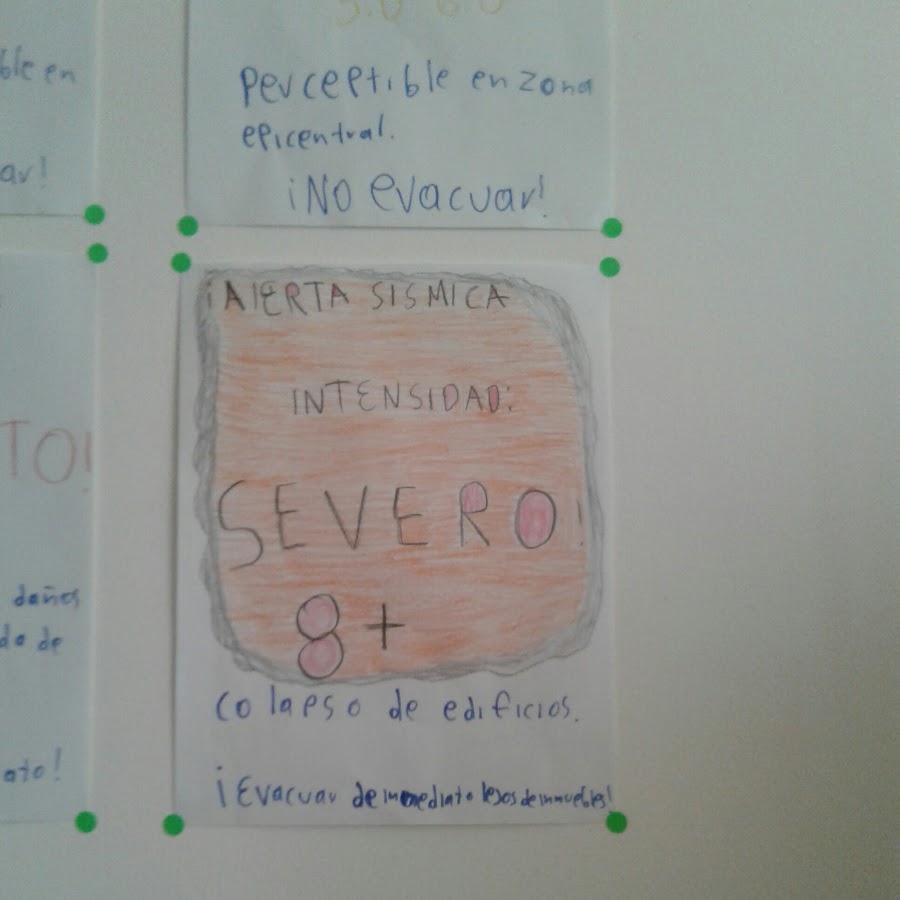 ble en
ar!
5.0 6.0
Perceptible en zona
epicentral.
¡No evacuar!
TO!
daños
da de
ato!
¡AlERTA SISMICA
INTENSIDAD:
SEVERO!
8+
Colapso de edificios.
¡Evacuar de inmediato lejos de inmuebles!